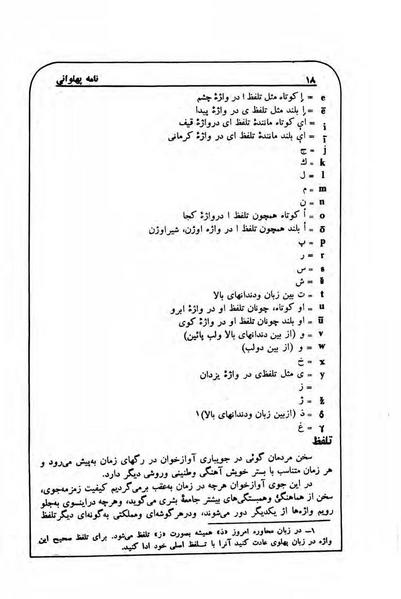 ۱۸ نامه پهلوانی
e = اِ کوتاه مثل تلفظ اِ در واژهٔ چشم
ē = اِ بلند مثل تلفظ ی در واژهٔ پیدا
i = ای کوتاه مانندهٔ تلفظ ای درواژهٔ قیف
ī = ای بلند مانندهٔ تلفظ ای در واژهٔ کرمانی
j = ج
k = ك
l = ل
m = م
n = ن
o = اُ کوتاه همچون تلفظ اُ درواژهٔ کجا
ō = اُ بلند همچون تلفظ اُ در واژه اوژن، شیراوژن
p = پ
r = ر
s = س
š = ش
t = ت بین زبان ودندانهای بالا
u = او کوتاه، چونان تلفظ او در واژهٔ ابرو
ū = او بلند چونان تلفظ او در واژهٔ کوی
v = و (از بین دندانهای بالا ولب پائین)
w = و (از بین دولب)
x = خ
y = ی مثل تلفظی در واژهٔ یزدان
z = ز
ž = ژ
δ = ذ (ازبین زبان ودندانهای بالا)۱
γ = غ
تلفظ
سخن مردمان گوئی در جویباری آوازخوان در رگهای زمان به‌پیش می‌رود و
هر زمان متناسب با بستر خویش آهنگی وطنینی وروشی دیگر دارد.
در این جوی آوازخوان هرچه در زمان به‌عقب برمی‌گردیم کیفیت زمزمه‌جوی،
سخن از هماهنگی‌ٔ وهمبستگی‌های بیشتر جامعهٔ بشری می‌گوید، وهرچه دراینسوی به‌جلو
رویم واژه‌ها از یکدیگر دور می‌شوند، ودرهرگوشه‌ای ومملکتی به‌گونه‌ای دیگرتلفظ
۱ــ در زبان محاوره امروز «ذ» همیشه بصورت «ز» تلفظ می‌شود. برای تلفظ صحیح این
واژه در زبان پهلوی عادت کنید آنرا با تــلفظ اصلی خود ادا کنید.